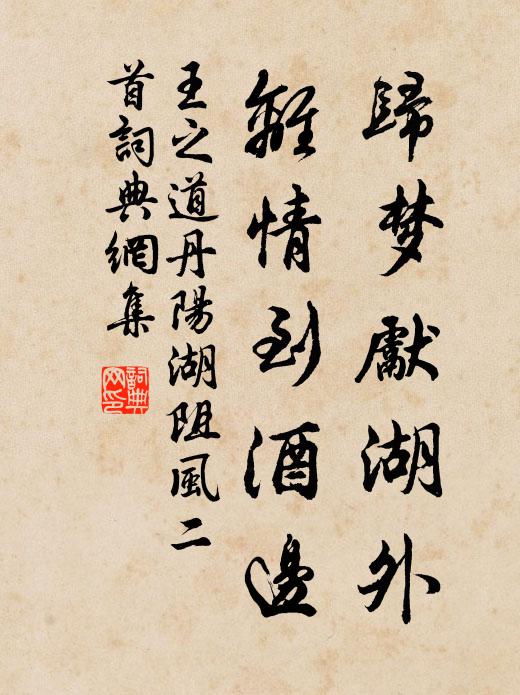 歸梦獻湖外
離情到酒邊
王之道丹陽湖阻風二
首詞典網集
詞典
网印